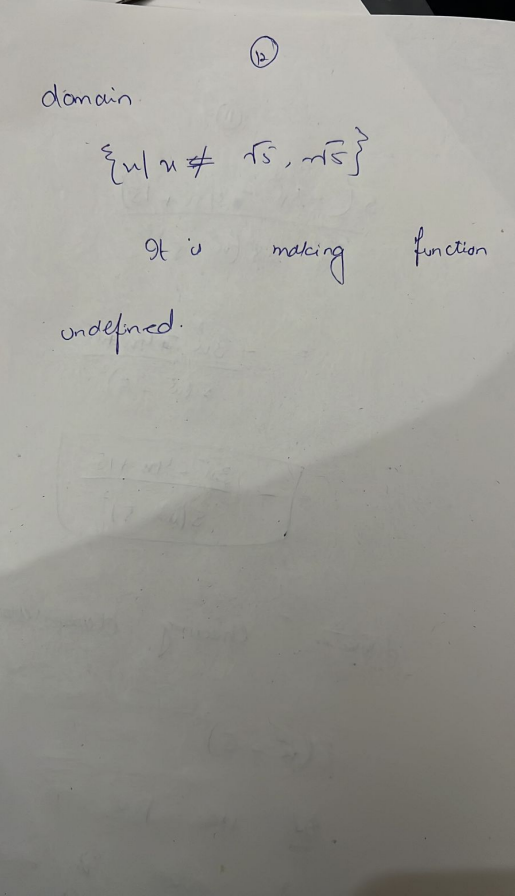 12
domain.
{x | x ≠ √5, √5}
It is making function
undefined.